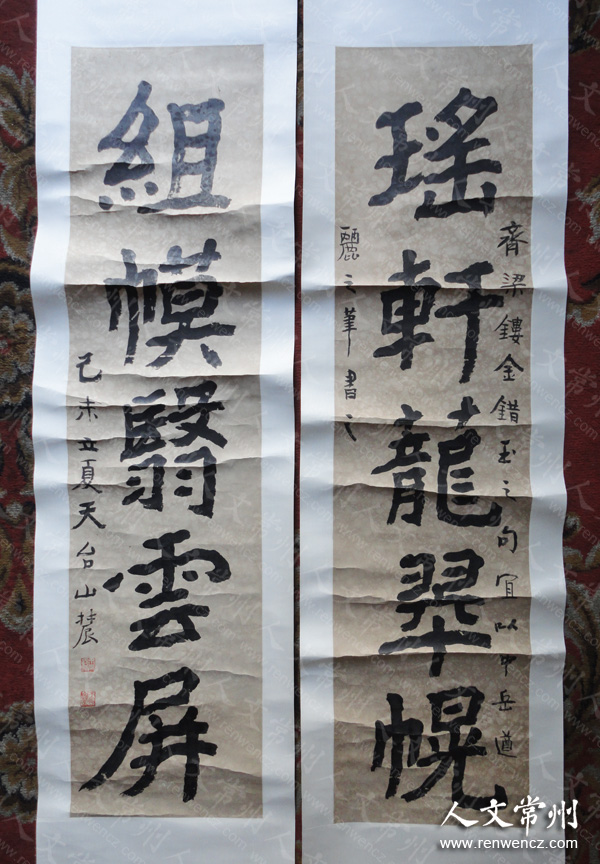 瑤軒龍翠幌
齊梁鏤金錯玉之句宜以中岳遒
麗之筆書之
組幙翳雲屏
己未立夏天台山辳
人文常州
www.renwencz.com